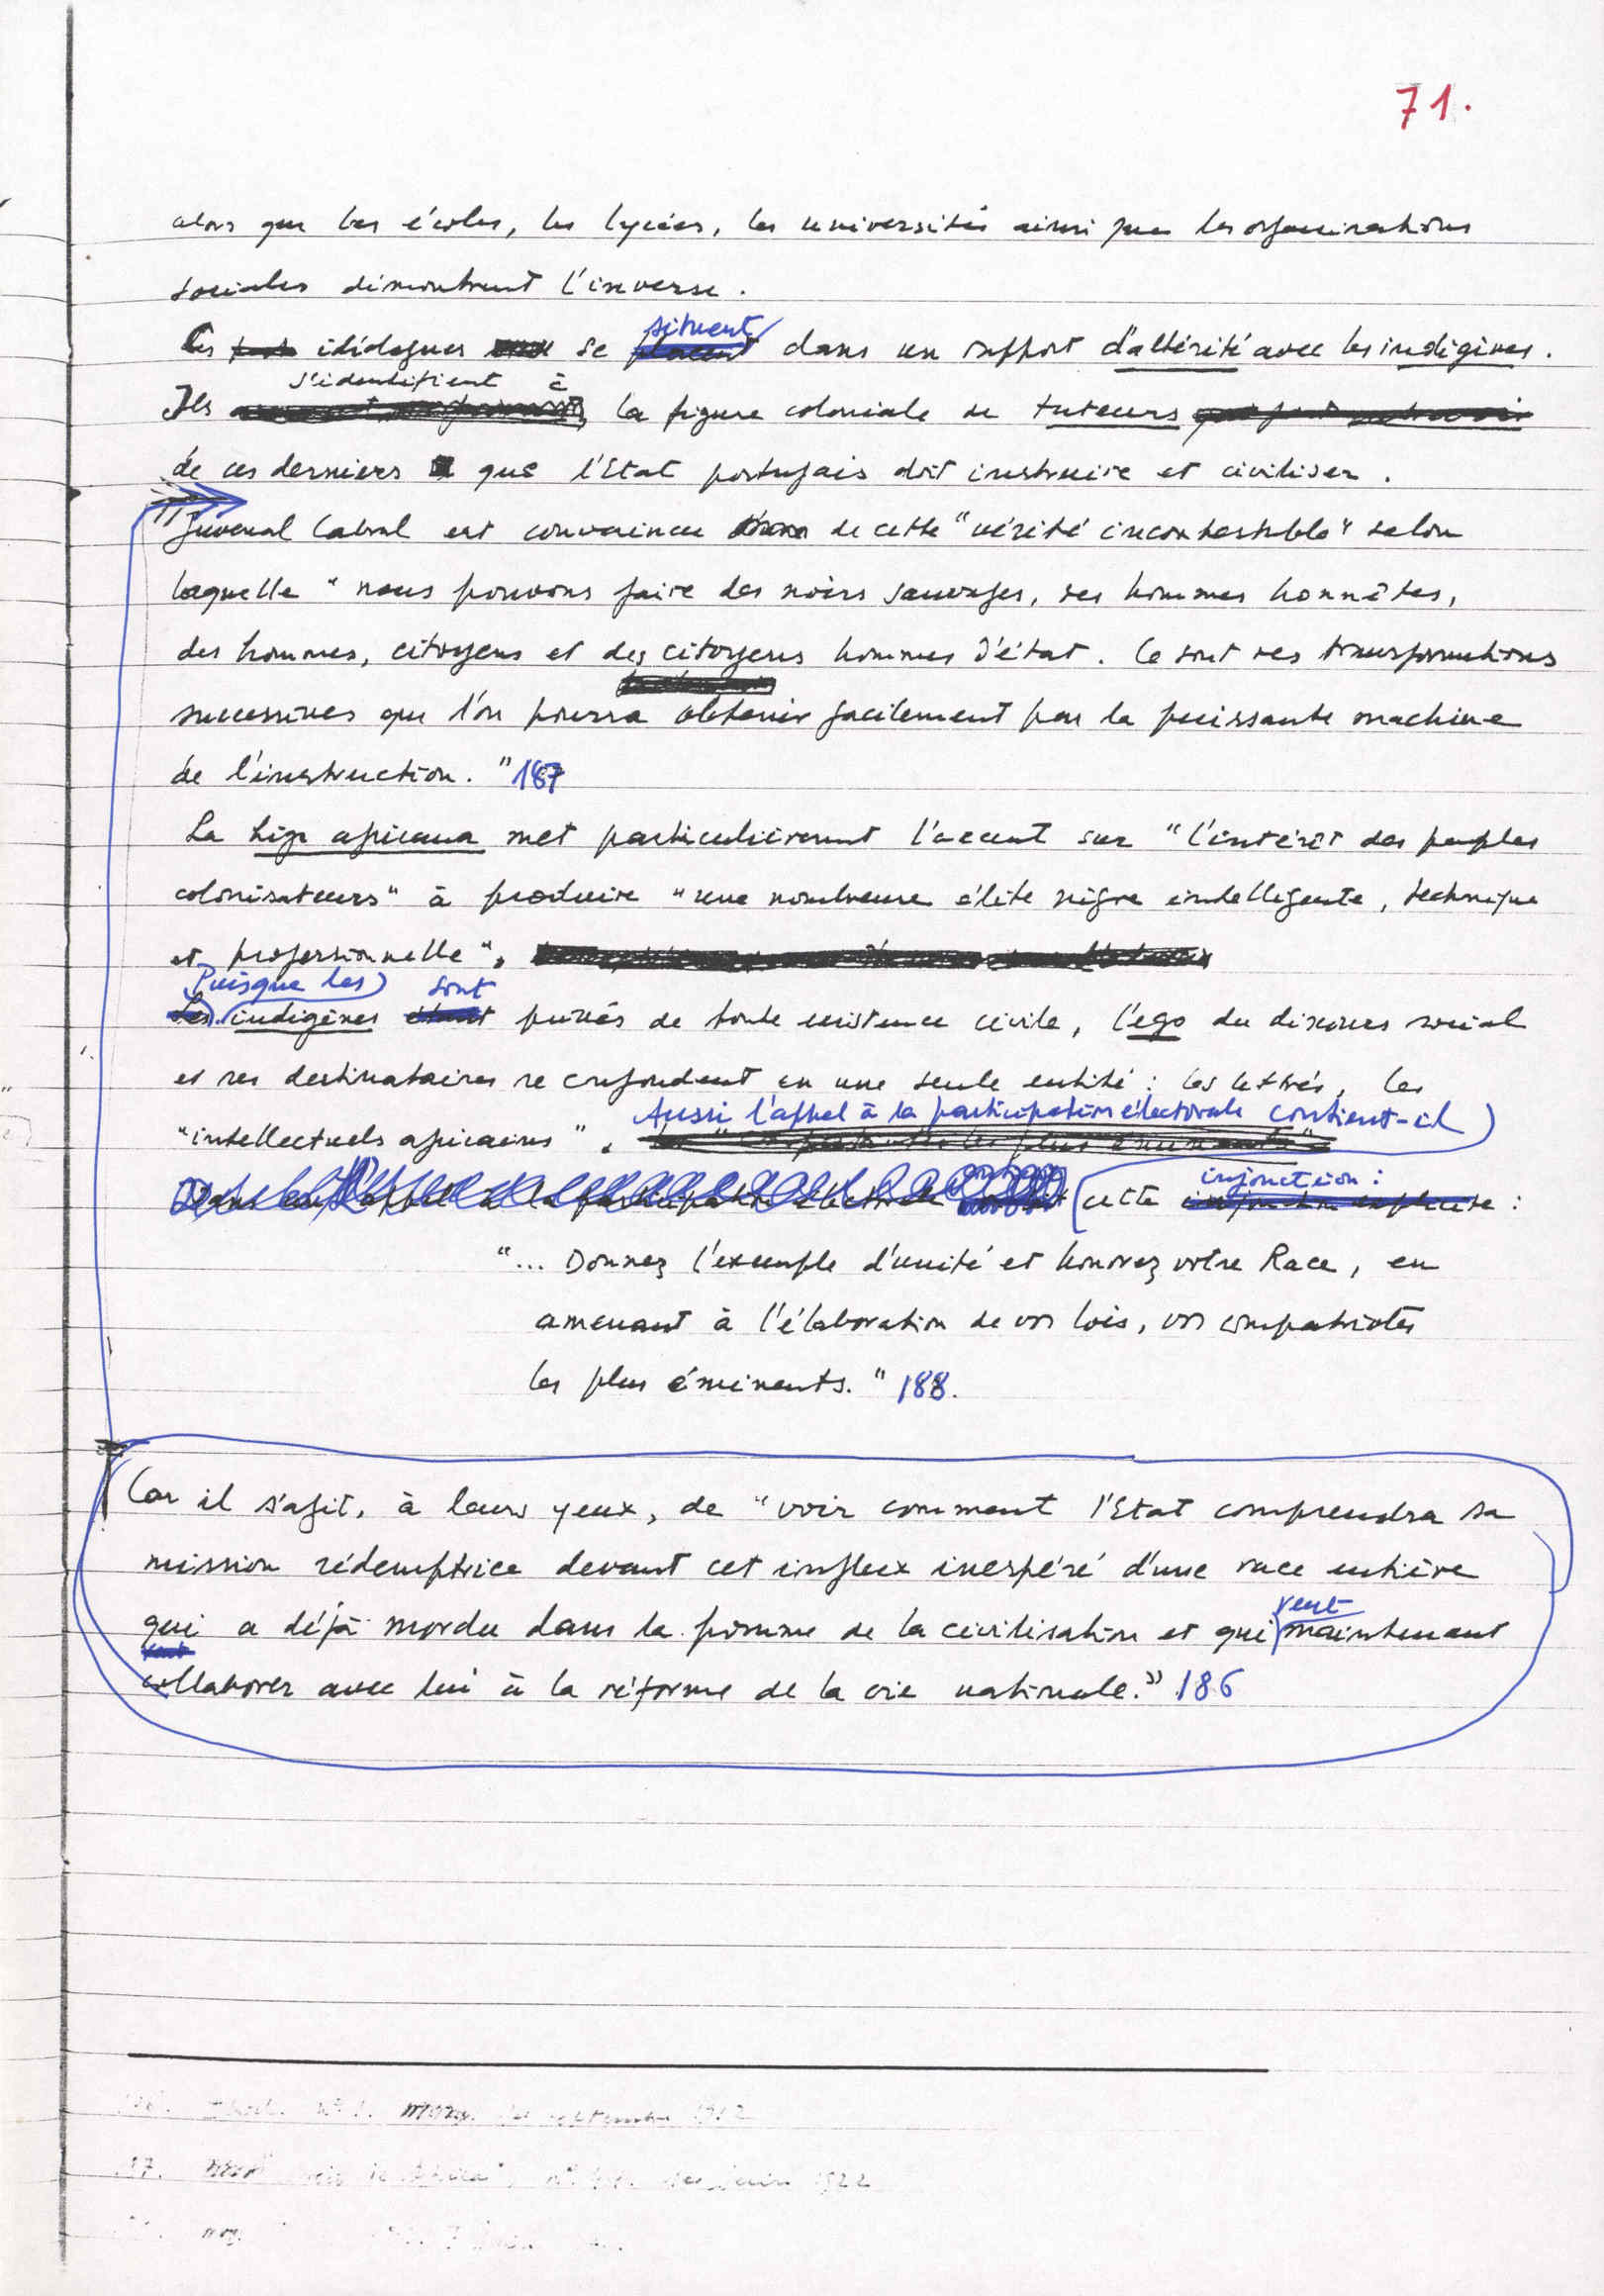 71.
alors que les écoles, les lycées, les universités ainsi que les organisations
sociales démontrent l'inverse.
situent
Ces idéologues se placent dans un rapport d'altérité avec les indigènes.
s'identifient à
Ils la figure coloniale de tuteurs
de ces derniers que l'Etat portugais doit instruire et civiliser.
Juvenal Cabral est convaincu de cette "vérité incontestable" selon
laquelle "nous pouvons faire des noirs sauvages, des hommes honnêtes,
des hommes, citoyens et des citoyens hommes d'état. Ce sont des transformations
successives que l'on pourra obtenir facilement par la puissante machine
de l'instruction." 187
La Liga africana met particulièrement l'accent sur "l'intérêt des peuples
colonisateurs" à produire "une nombreuse élite nègre intelligente, technique
et professionnelle".
Puisque les sont
Les indigènes étant privés de toute existence civile, l'ego du discours social
et ses destinataires se confondent en une seule entité : les lettrés, les
Aussi l'appel à la participation électorale contient-il
"intellectuels africains".
injonction :
cette injonction explicite :
"... Donnez l'exemple d'unité et honorez votre Race, en
amenant à l'élaboration de vos lois, vos compatriotes
les plus éminents." 188.
Car il s'agit, à leurs yeux, de "voir comment l'Etat comprendra sa
mission rédemptrice devant cet influx inespéré d'une race entière
veut
qui a déjà mordu dans la pomme de la civilisation et qui maintenant
veut
collaborer avec lui à la réforme de la vie nationale." 186
1922